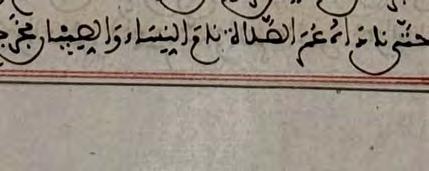 حَتَّى نَادَاهُ عُمَرُ الصَّلَاةَ نَامَ النِّسَاءُ وَالصِّبْيَانُ فَخَرَجَ